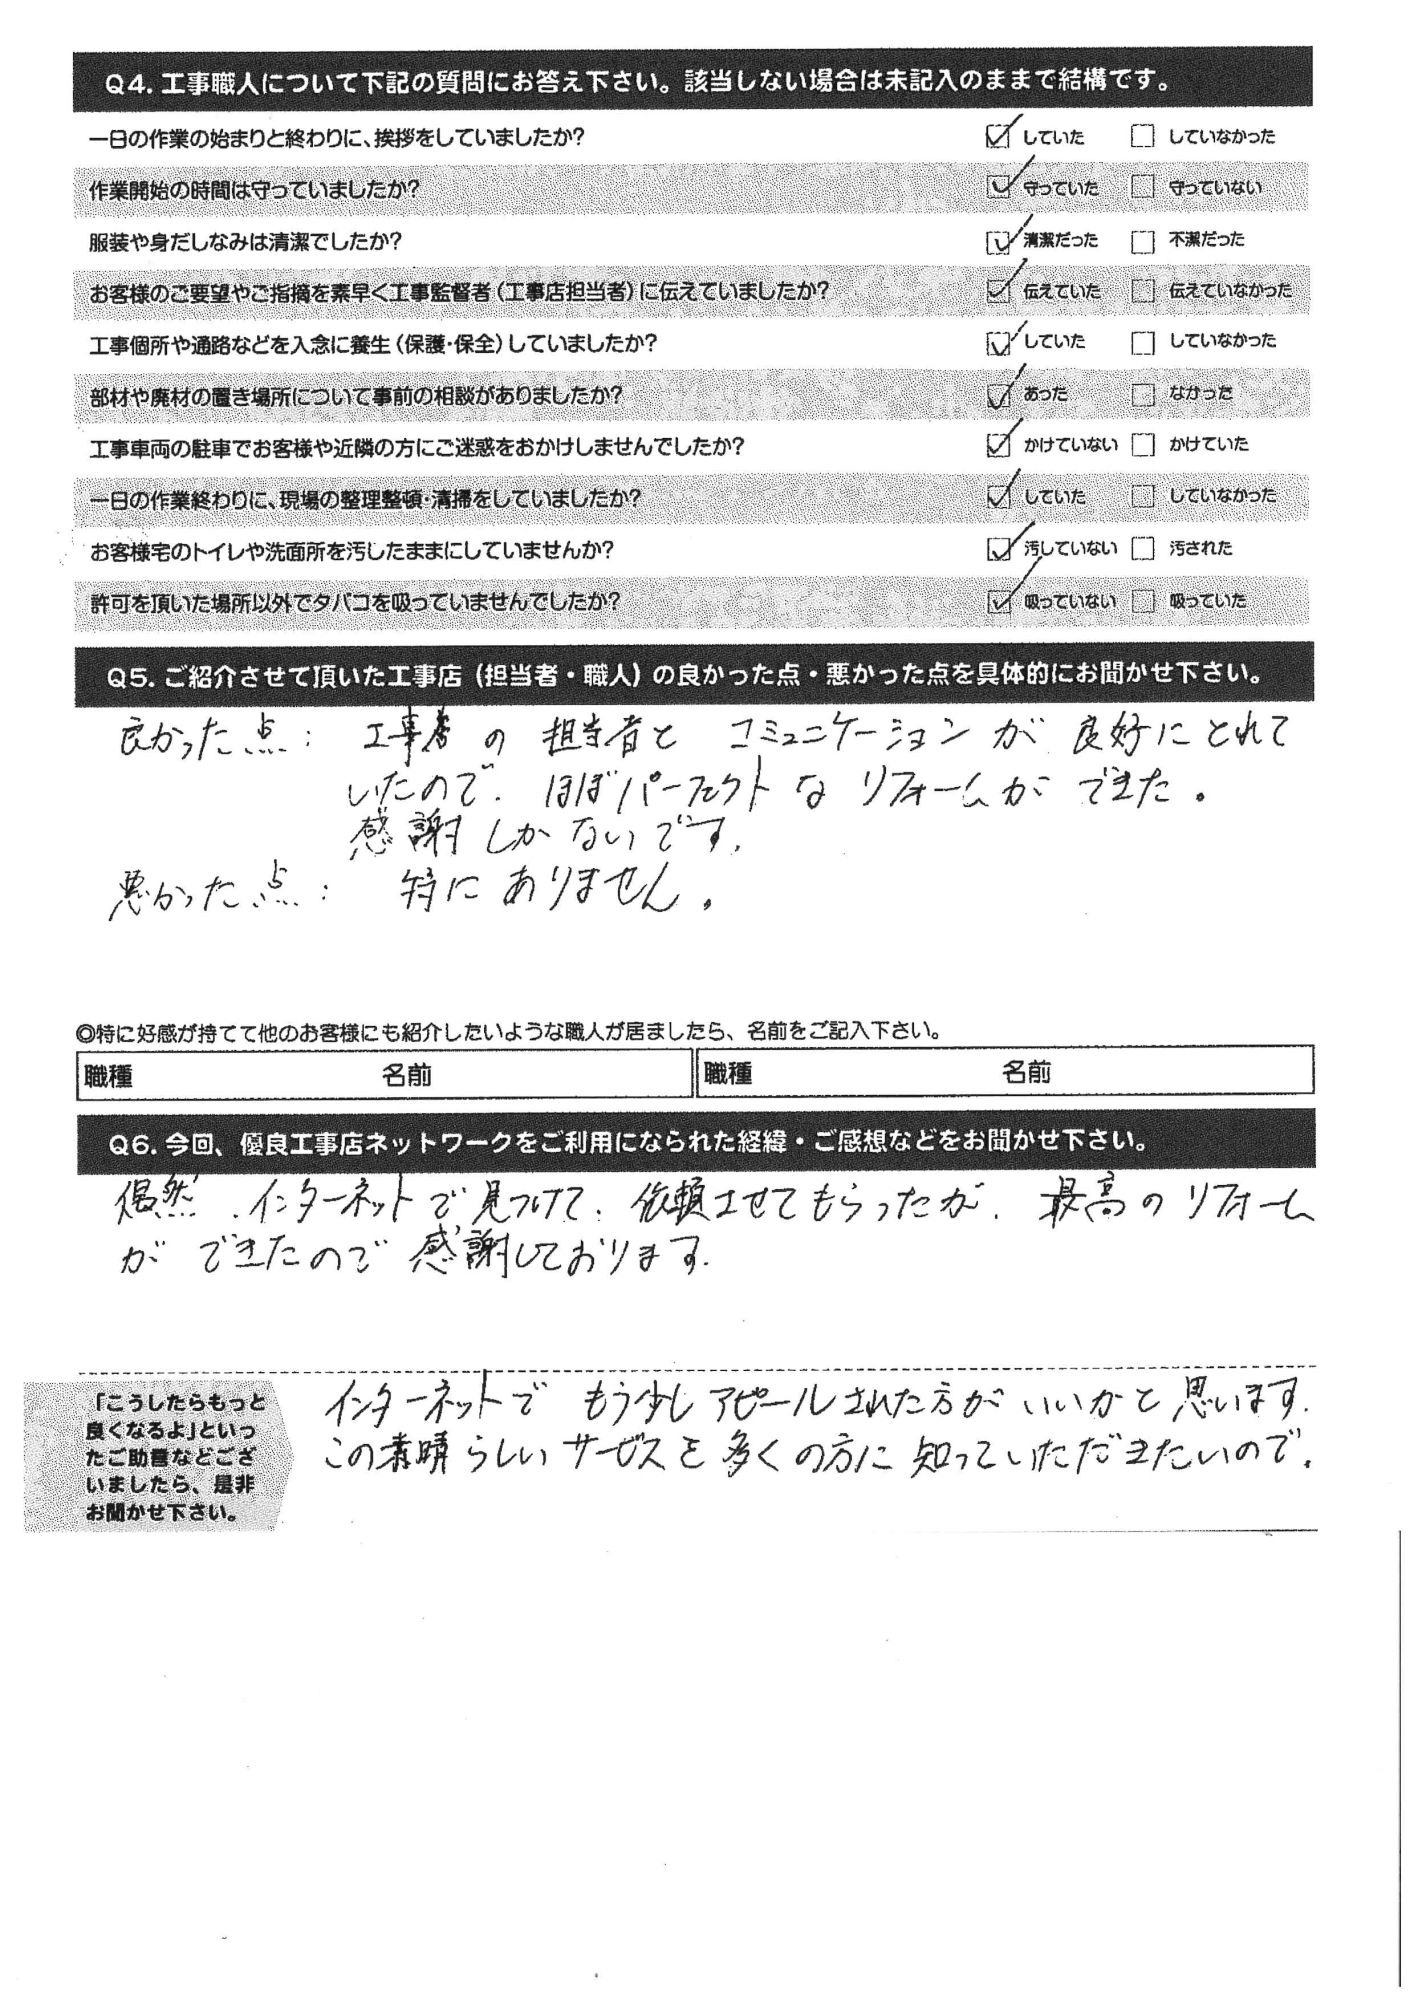 Q4. 工事職人について下記の質問にお答え下さい。該当しない場合は未記入のままで結構です。
一日の作業の始まりと終わりに、挨拶をしていましたか? ☑ していた ☐ していなかった
作業開始の時間は守っていましたか? ☑ 守っていた ☐ 守っていない
服装や身だしなみは清潔でしたか? ☑ 清潔だった ☐ 不潔だった
お客様のご要望やご指摘を素早く工事監督者(工事店担当者)に伝えていましたか? ☑ 伝えていた ☐ 伝えていなかった
工事個所や通路などを入念に養生(保護・保全)していましたか? ☑ していた ☐ していなかった
部材や廃材の置き場所について事前の相談がありましたか? ☑ あった ☐ なかった
工事車両の駐車でお客様や近隣の方にご迷惑をおかけしませんでしたか? ☑ かけていない ☐ かけていた
一日の作業終わりに、現場の整理整頓・清掃をしていましたか? ☑ していた ☐ していなかった
お客様宅のトイレや洗面所を汚したままにしていませんか? ☑ 汚していない ☐ 汚された
許可を頂いた場所以外でタバコを吸っていませんでしたか? ☑ 吸っていない ☐ 吸っていた
Q5. ご紹介させて頂いた工事店(担当者・職人)の良かった点・悪かった点を具体的にお聞かせ下さい。
良かった点: 工事の担当者とコミュニケーションが良好にとれて
いたので、ほぼパーフェクトなリフォームができた。
感謝しかないです。
悪かった点: 特にありません。
◎特に好感が持てて他のお客様にも紹介したいような職人が居ましたら、名前をご記入下さい。
職種 名前 職種 名前
Q6. 今回、優良工事店ネットワークをご利用になられた経緯・ご感想などをお聞かせ下さい。
偶然、インターネットで見つけて、依頼させてもらったが、最高のリフォーム
ができたので感謝しております。
「こうしたらもっと
良くなるよ」といっ
たご助言などござ
いましたら、是非
お聞かせ下さい。
インターネットでもう少しアピールされた方がいいかと思います。
この素晴らしいサービスを多くの方に知っていただきたいので。